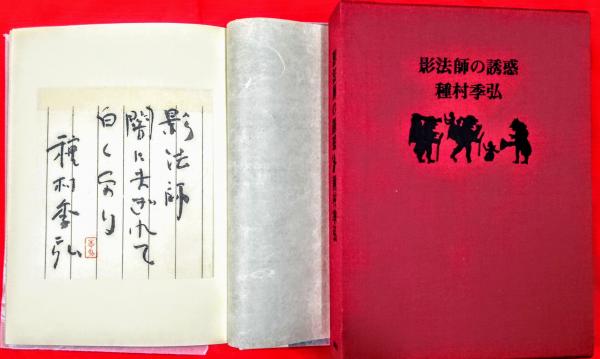 影法師
闇にまぎれて
白くなり
種村季弘
影法師の誘惑
種村季弘
影法師の誘惑
種村季弘